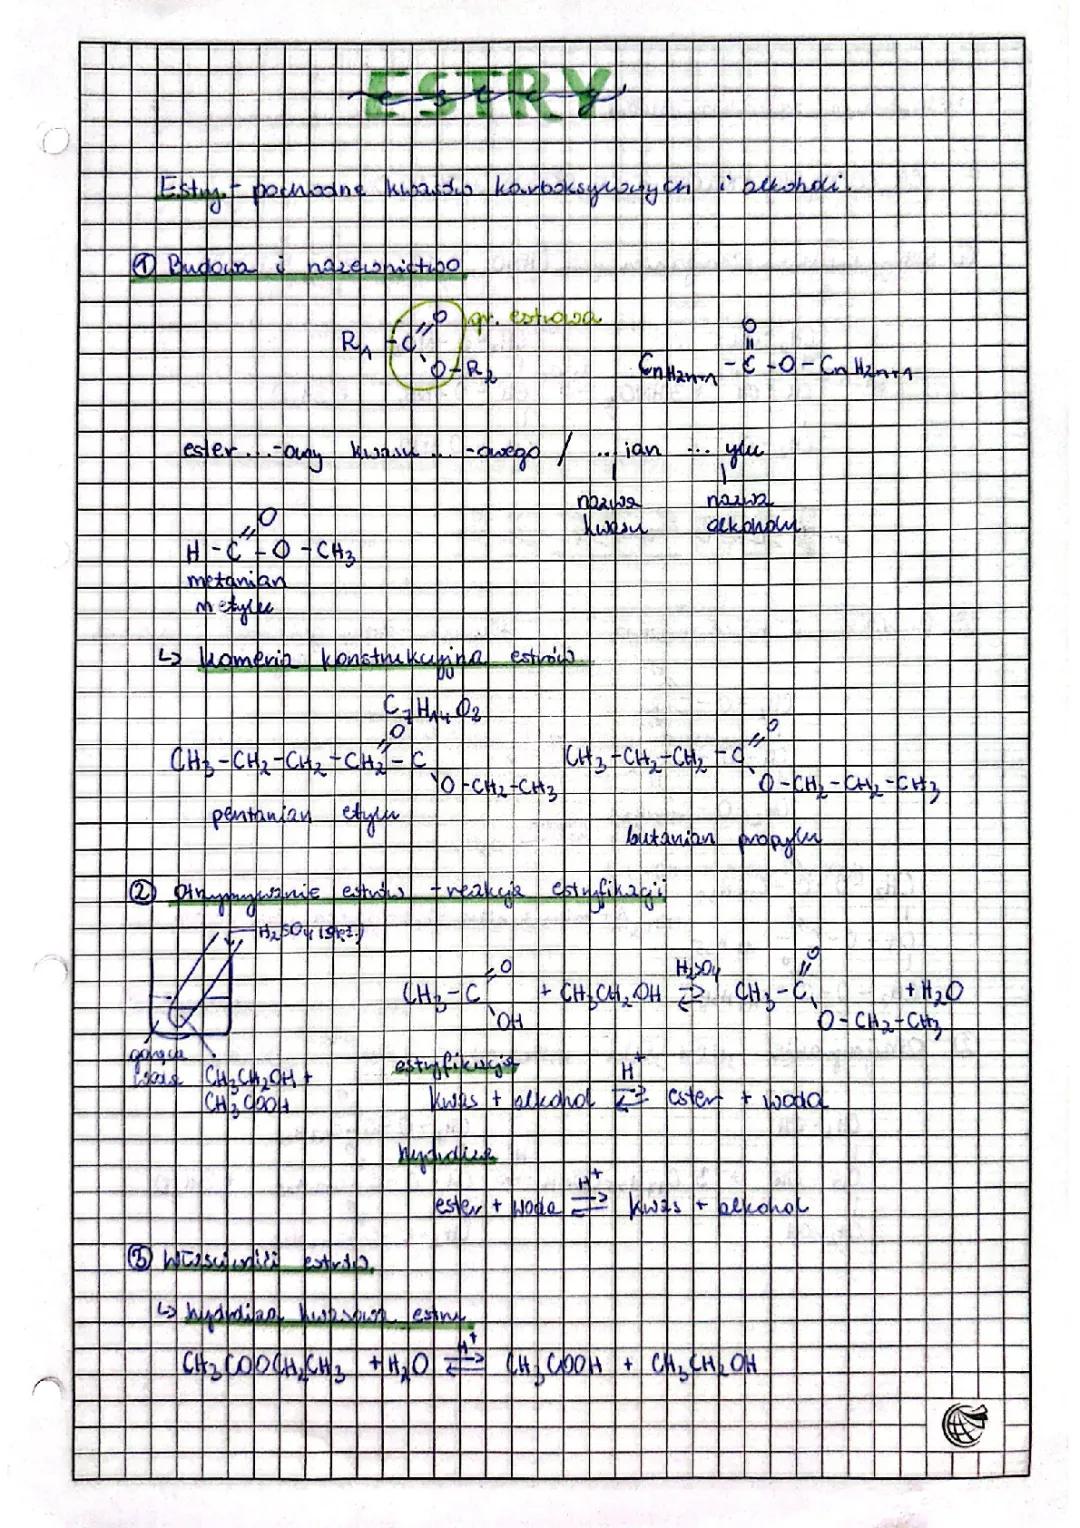 ESTRY
estry
Estry - pochodne kwasów karboksylowych i alkoholi.
① Budowa i nazewnictwo
R₁ - C = O gr. estrowa
O - R₂
O
CₙH₂ₙ₊₁ - C - O - CₙH₂ₙ₊₁
ester ... -owy kwasu ... -owego / ... ian ... ylu
nazwa nazwa
kwasu alkoholu
O
H - C - O - CH₃
metanian
metylu
↳ Izomeria konstrukcyjna estrów
C₇H₁₄O₂
O O
CH₃-CH₂-CH₂-CH₂-C CH₃-CH₂-CH₂-C
O-CH₂-CH₃ O-CH₂-CH₂-CH₃
pentanian etylu
butanian propylu
② Otrzymywanie estrów - reakcja estryfikacji
H₂SO₄ (stęż.)
O H₂SO₄ O
CH₃-C + CH₃CH₂OH ⇄ CH₃-C + H₂O
OH O-CH₂-CH₃
gorąca
woda CH₃CH₂OH +
CH₃COOH
estryfikacja
H⁺
kwas + alkohol ⇄ ester + woda
hydroliza
H⁺
ester + woda ⇄ kwas + alkohol
③ Właściwości estrów.
↳ hydroliza kwasowa estru
H⁺
CH₃COOCH₂CH₃ + H₂O ⇄ CH₃COOH + CH₃CH₂OH